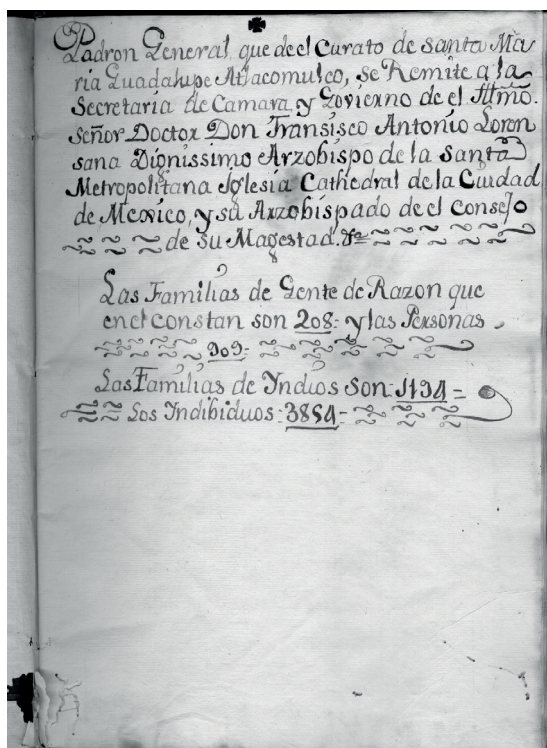 Padron General que de el Curato de santa Ma
ria Guadalupe Atlacomulco, se Remite a la
Secretaria de Camara, y Govierno de el Illmô.
Señor Doctor Don Fransisco Antonio Loren
sana Dignissimo Arzobispo de la Santa
Metropolitana Iglesia Cathedral de la Ciudad
de Mexico, y su Arzobispado de el Consejo
de su Magestad. &a
Las Familias de Gente de Razon que
en el constan son 208- y las Personas
909-
Las Familias de Yndios son-1134=
Los Indibiduos= 3854-